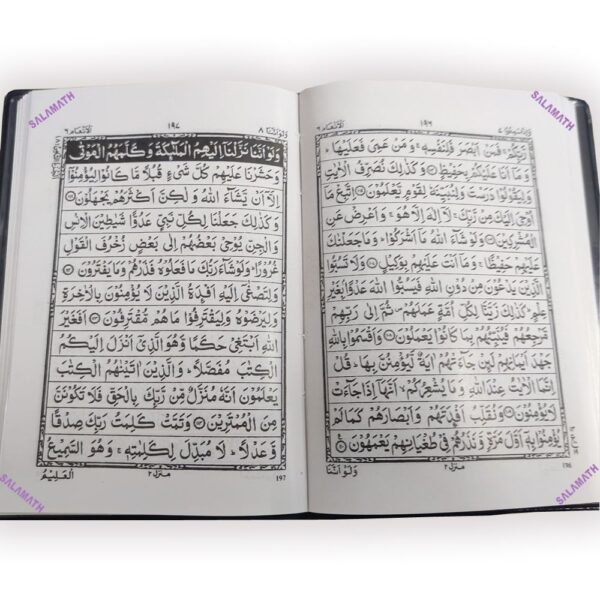 SALAMATH
SALAMATH
وَاِذَا سَمِعُوْا ٧ ١٩٦ الْاَنْعَام ٦
رَّبِّكُمْ ۚ فَمَنْ اَبْصَرَ فَلِنَفْسِهٖ ۚ وَ مَنْ عَمِيَ فَعَلَيْهَا ؕ
وَ مَاۤ اَنَا عَلَيْكُمْ بِحَفِيْظٍ ۝ وَكَذٰلِكَ نُصَرِّفُ الْاٰيٰتِ
وَلِيَقُوْلُوْا دَرَسْتَ وَلِنُبَيِّنَهٗ لِقَوْمٍ يَّعْلَمُوْنَ ۝ اِتَّبِعْ مَاۤ
اُوْحِيَ اِلَيْكَ مِنْ رَّبِّكَ ۚ لَاۤ اِلٰهَ اِلَّا هُوَ ۚ وَاَعْرِضْ عَنِ
الْمُشْرِكِيْنَ ۝ وَلَوْ شَآءَ اللّٰهُ مَاۤ اَشْرَكُوْا ؕ وَمَا جَعَلْنٰكَ
عَلَيْهِمْ حَفِيْظًا ۚ وَمَاۤ اَنْتَ عَلَيْهِمْ بِوَكِيْلٍ ۝ وَلَا تَسُبُّوا
الَّذِيْنَ يَدْعُوْنَ مِنْ دُوْنِ اللّٰهِ فَيَسُبُّوا اللّٰهَ عَدْوًۢا بِغَيْرِ
عِلْمٍ ؕ كَذٰلِكَ زَيَّنَّا لِكُلِّ اُمَّةٍ عَمَلَهُمْ ۪ ثُمَّ اِلٰى رَبِّهِمْ
مَّرْجِعُهُمْ فَيُنَبِّئُهُمْ بِمَا كَانُوْا يَعْمَلُوْنَ ۝ وَاَقْسَمُوْا بِاللّٰهِ
جَهْدَ اَيْمَانِهِمْ لَئِنْ جَآءَتْهُمْ اٰيَةٌ لَّيُؤْمِنُنَّ بِهَا ؕ قُلْ
اِنَّمَا الْاٰيٰتُ عِنْدَ اللّٰهِ وَمَا يُشْعِرُكُمْ ۙ اَنَّهَاۤ اِذَا جَآءَتْ
لَا يُؤْمِنُوْنَ ۝ وَنُقَلِّبُ اَفْـِٕدَتَهُمْ وَاَبْصَارَهُمْ كَمَا لَمْ
يُؤْمِنُوْا بِهٖۤ اَوَّلَ مَرَّةٍ وَّنَذَرُهُمْ فِيْ طُغْيَانِهِمْ يَعْمَهُوْنَ ۝
196 منزل ٢ وَلَوْ اَنَّنَا
SALAMATH
وَلَوْ اَنَّنَا ٨ ١٩٧ الْاَنْعَام ٦
وَلَوْ اَنَّنَا نَزَّلْنَاۤ اِلَيْهِمُ الْمَلٰٓئِكَةَ وَكَلَّمَهُمُ الْمَوْتٰى
وَحَشَرْنَا عَلَيْهِمْ كُلَّ شَيْءٍ قُبُلًا مَّا كَانُوْا لِيُؤْمِنُوْۤا
اِلَّاۤ اَنْ يَّشَآءَ اللّٰهُ وَلٰكِنَّ اَكْثَرَهُمْ يَجْهَلُوْنَ ۝
وَكَذٰلِكَ جَعَلْنَا لِكُلِّ نَبِيٍّ عَدُوًّا شَيٰطِيْنَ الْاِنْسِ
وَالْجِنِّ يُوْحِيْ بَعْضُهُمْ اِلٰى بَعْضٍ زُخْرُفَ الْقَوْلِ
غُرُوْرًا ؕ وَلَوْ شَآءَ رَبُّكَ مَا فَعَلُوْهُ فَذَرْهُمْ وَمَا يَفْتَرُوْنَ ۝
وَلِتَصْغٰۤى اِلَيْهِ اَفْـِٕدَةُ الَّذِيْنَ لَا يُؤْمِنُوْنَ بِالْاٰخِرَةِ
وَلِيَرْضَوْهُ وَلِيَقْتَرِفُوْا مَا هُمْ مُّقْتَرِفُوْنَ ۝ اَفَغَيْرَ
اللّٰهِ اَبْتَغِيْ حَكَمًا وَّهُوَ الَّذِيْۤ اَنْزَلَ اِلَيْكُمُ
الْكِتٰبَ مُفَصَّلًا ؕ وَالَّذِيْنَ اٰتَيْنٰهُمُ الْكِتٰبَ
يَعْلَمُوْنَ اَنَّهٗ مُنَزَّلٌ مِّنْ رَّبِّكَ بِالْحَقِّ فَلَا تَكُوْنَنَّ
مِنَ الْمُمْتَرِيْنَ ۝ وَتَمَّتْ كَلِمَتُ رَبِّكَ صِدْقًا
وَّعَدْلًا ؕ لَا مُبَدِّلَ لِكَلِمٰتِهٖ ۚ وَهُوَ السَّمِيْعُ
الْعَلِيْمُ منزل ٢ 197
SALAMATH